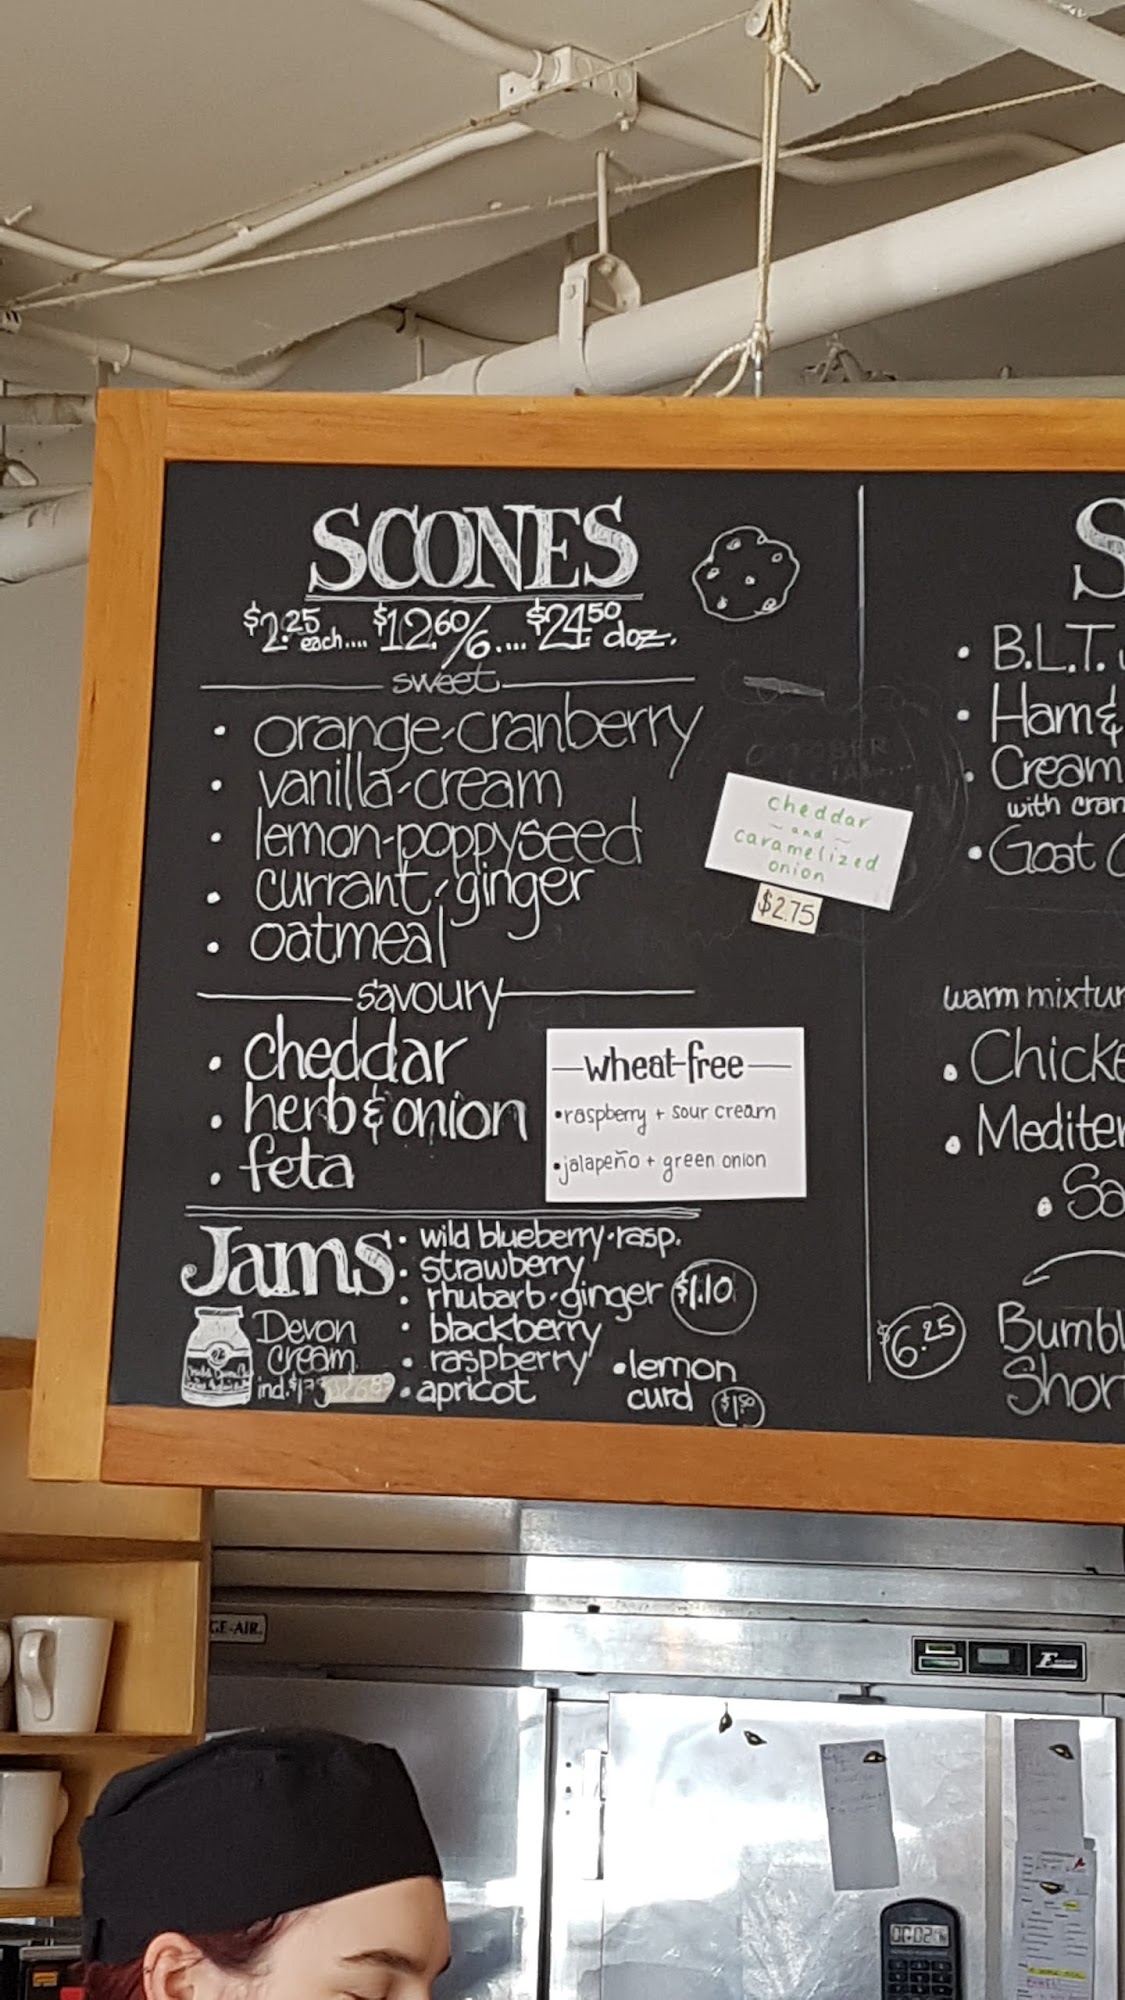 SCONES
$2.25 each.... $12.60/6.... $24.50 doz.
sweet
• orange-cranberry
• vanilla-cream
• lemon-poppyseed
• currant-ginger
• oatmeal
cheddar
~ and ~
caramelized
onion
$2.75
savoury
• cheddar
• herb & onion
• feta
wheat-free
• raspberry + sour cream
• jalapeño + green onion
Jams
• wild blueberry•rasp.
• strawberry
• rhubarb-ginger $1.10
• blackberry
• raspberry
• apricot
• lemon
curd $1.50
Devon
cream
ind.
• B.L.T.
• Ham &
• Cream
with cran
• Goat
warm mixtur
• Chicke
• Mediter
• Sa
$6.25
Bumbl
Shor
GE-AIR.